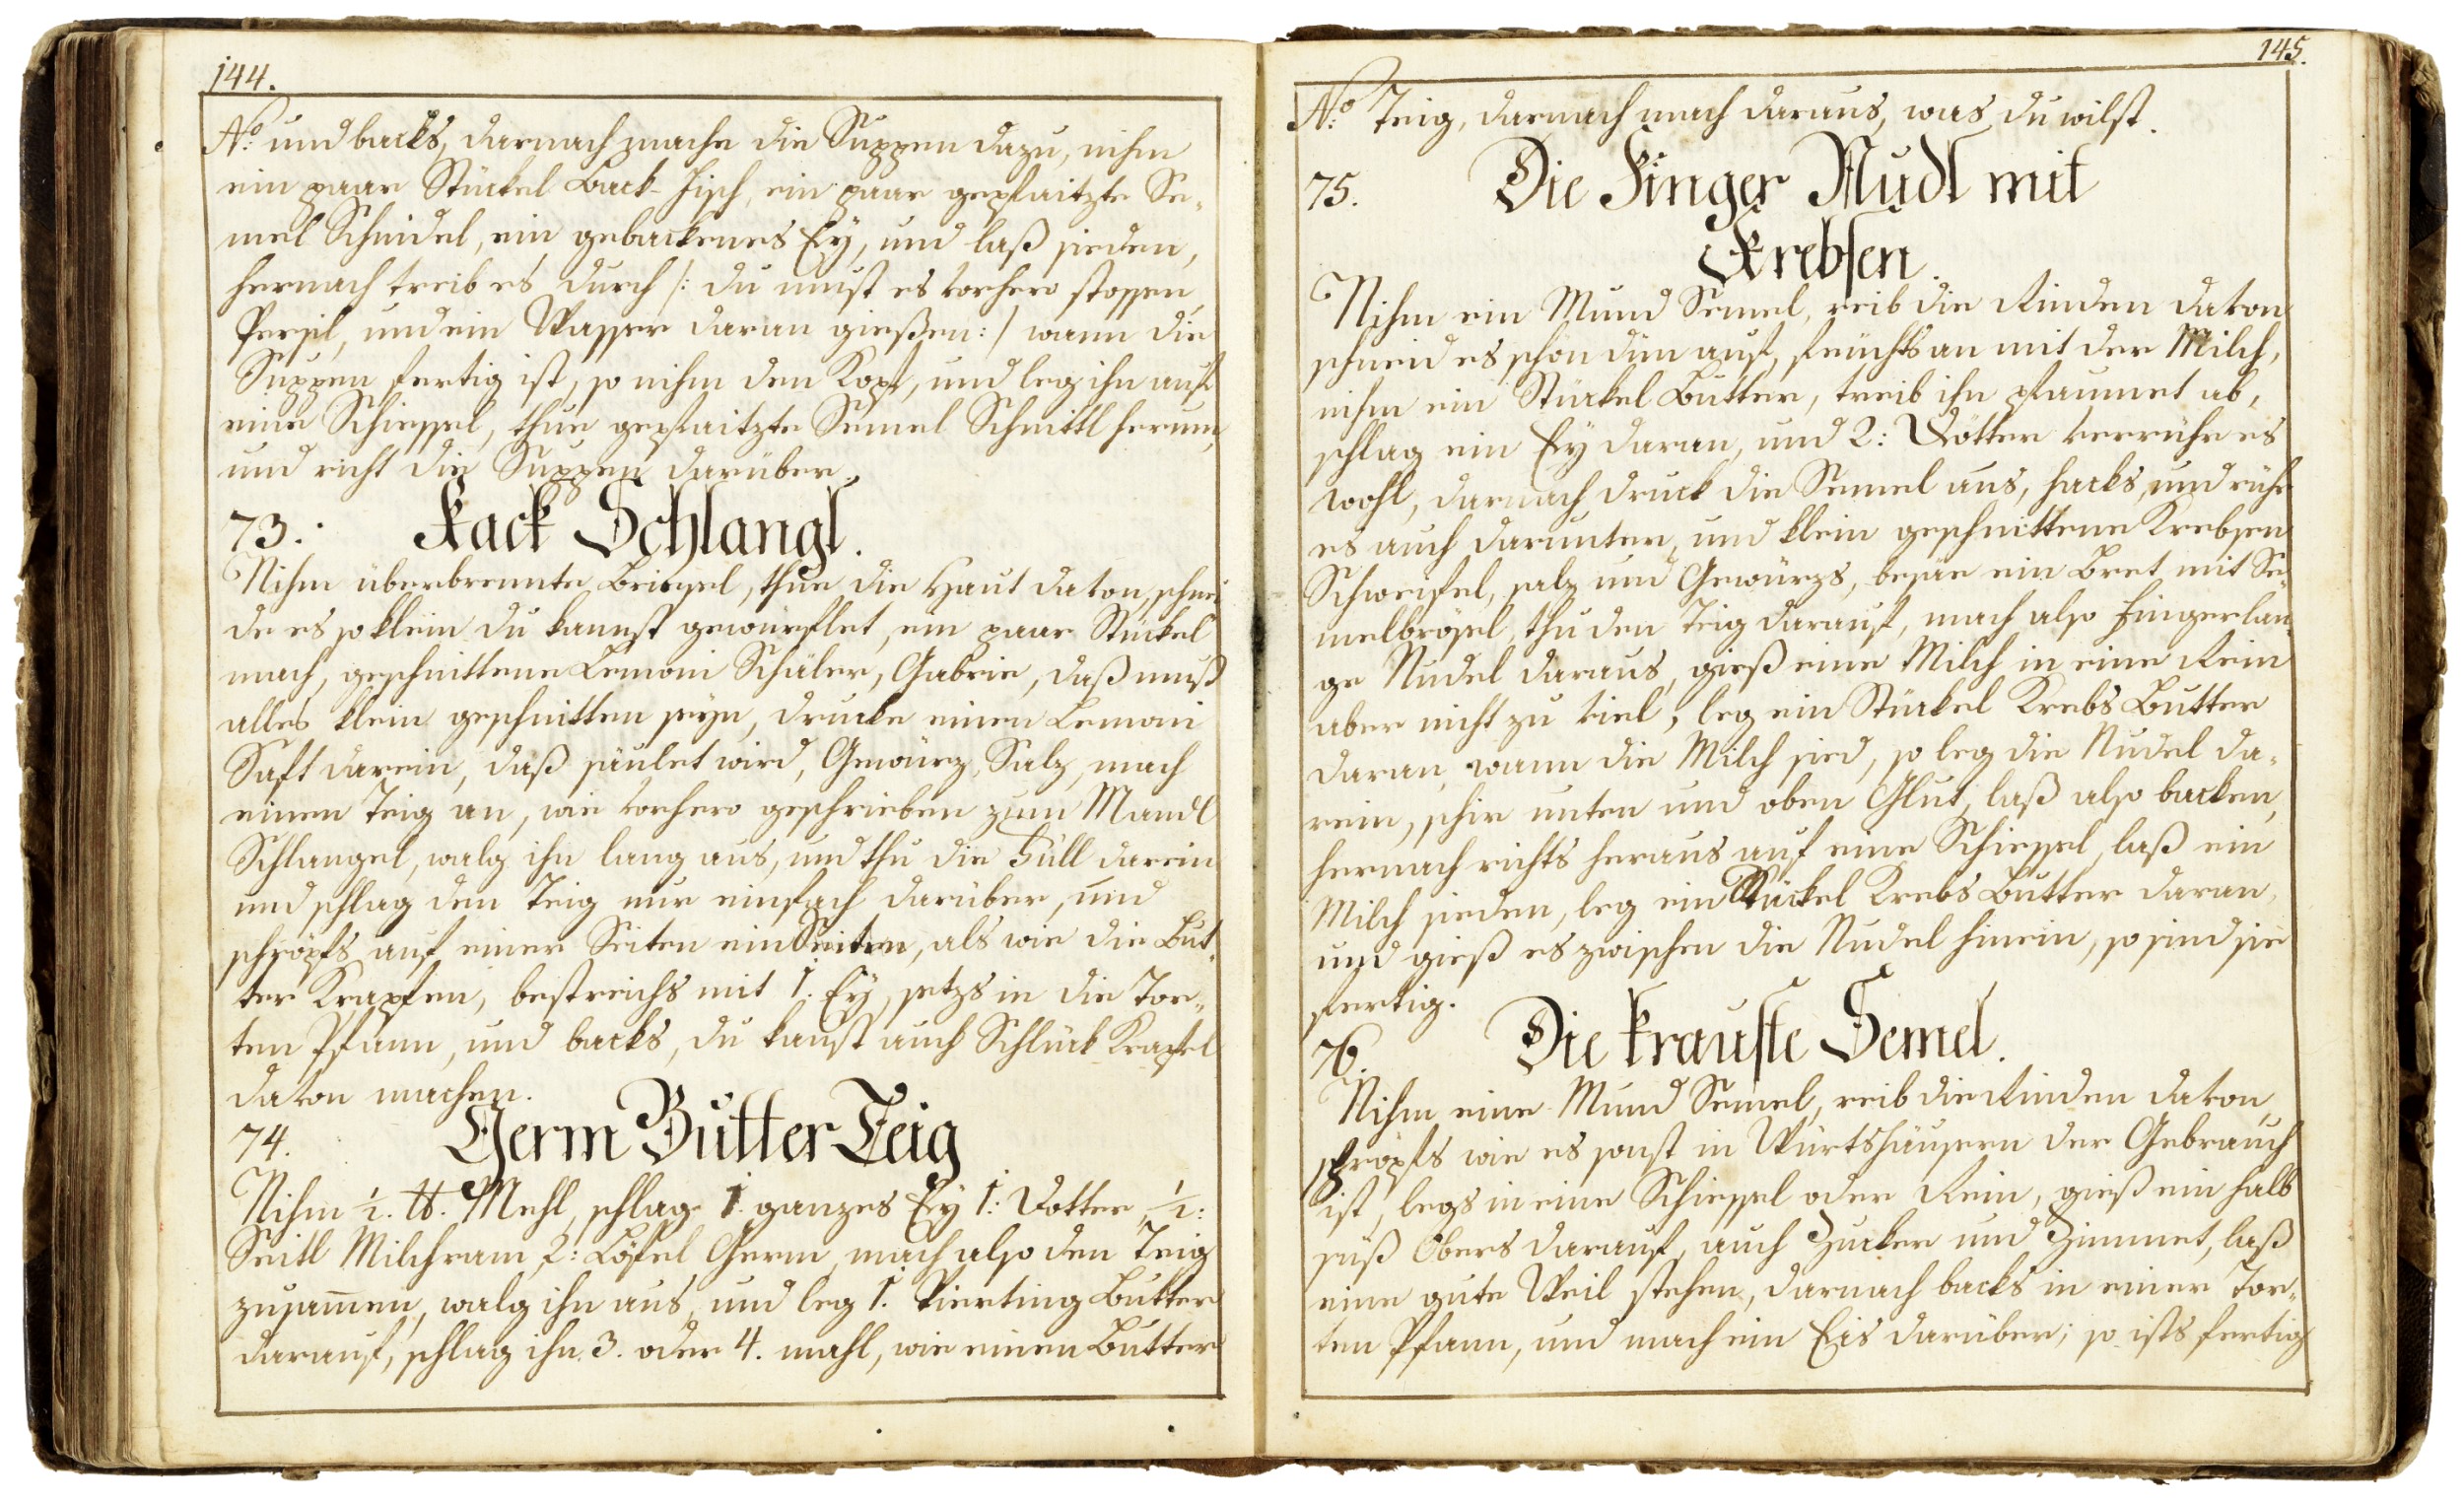 144.
No: und backs, darnach mache die Suppen dazu, nihm
ein paar Stückel Back-Fisch, ein paar gepfaitzte Se-
mel Schnidel, ein gebackenes Ey, und laß sieden,
hernach treib es durch /: du must es vorhero stossen,
Persil, und ein Wasser daran gießen:/ wann die
Suppen fertig ist, so nihm den Kopf, und leg ihn auf
eine Schiessel, thue gepfaitzte Semel Schnittl herum,
und richt die Suppen darüber.
73. Fack Schlangl.
Nihm überbrennte Briessel, thue die Haut davon, schnei
de es so klein du kannst gewürflet, ein paar Stückel
mach, geschnittene Lemoni Schäler, Gabrie, daß muß
alles klein geschnitten seyn, drucke einen Lemoni
Saft darein, daß säulet wird, Gewürz, Salz, mach
einen Teig an, wie vorhero geschrieben zum Mandl
Schlangel, walg ihn lang aus, und thu die Füll darein
und schlag den Teig nur einfach darüber, und
schröpfs auf einer Seiten ein Seiten, als wie die But-
ter Krapfen, bestreichs mit 1. Ey, setzs in die Tor-
ten Pfann, und backs, du kanst auch Schlück Krapfel
davon machen.
74. Germ Butter Teig
Nihm 1/2. ℔. Mehl, schlag 1. ganzes Ey 1: Dotter, 1/2:
Seitl Milchram, 2: Löfel Germ, mach also den Teig
zusam̄en, walg ihn aus, und leg 1. Vierting Butter
darauf, schlag ihn 3. oder 4. mahl, wie einen Butter
145.
No: Teig, darnach mach daraus, was du wilst.
75. Die Finger Nudl mit
Krebsen.
Nihm ein Mund Semel, reib die Rinden davon
schneid es schön din auf, feuchts an mit der Milch,
nihm ein Stückel Butter, treib ihn pflaumet ab,
schlag ein Ey daran, und 2: Dötter verrühr es
wohl, darnach druck die Semel aus, hacks, und rühr
es auch darunter, und klein geschnittene Krebsen
Schweifel, salz und Gewürzs, besäe ein Bret mit Se-
melbrösel, thu den Teig darauf, mach also fingerlan-
ge Nudel daraus, gieß eine Milch in eine Rein
aber nicht zu viel, leg ein Stückel Krebs Butter
daran, wann die Milch sied, so leg die Nudel da-
rein, schir unten und oben Glut, laß also backen,
hernach richts heraus auf eine Schiessel, laß ein
Milch sieden, leg ein Stückel Krebs Butter daran,
und gieß es zwischen die Nudel hinein, so sind sie
fertig.
76. Die krauste Semel.
Nihm eine Mund Semel, reib die Rinden davon,
schröpfs wie es sonst in Würtshäusern der Gebrauch
ist, legs in eine Schiessel oder Rein, gieß ein halb
süß Obers darauf, auch Zucker und Zimmet, laß
eine gute Weil stehen, darnach backs in einer Tor-
ten Pfann, und mach ein Eis darüber; so ists fertig